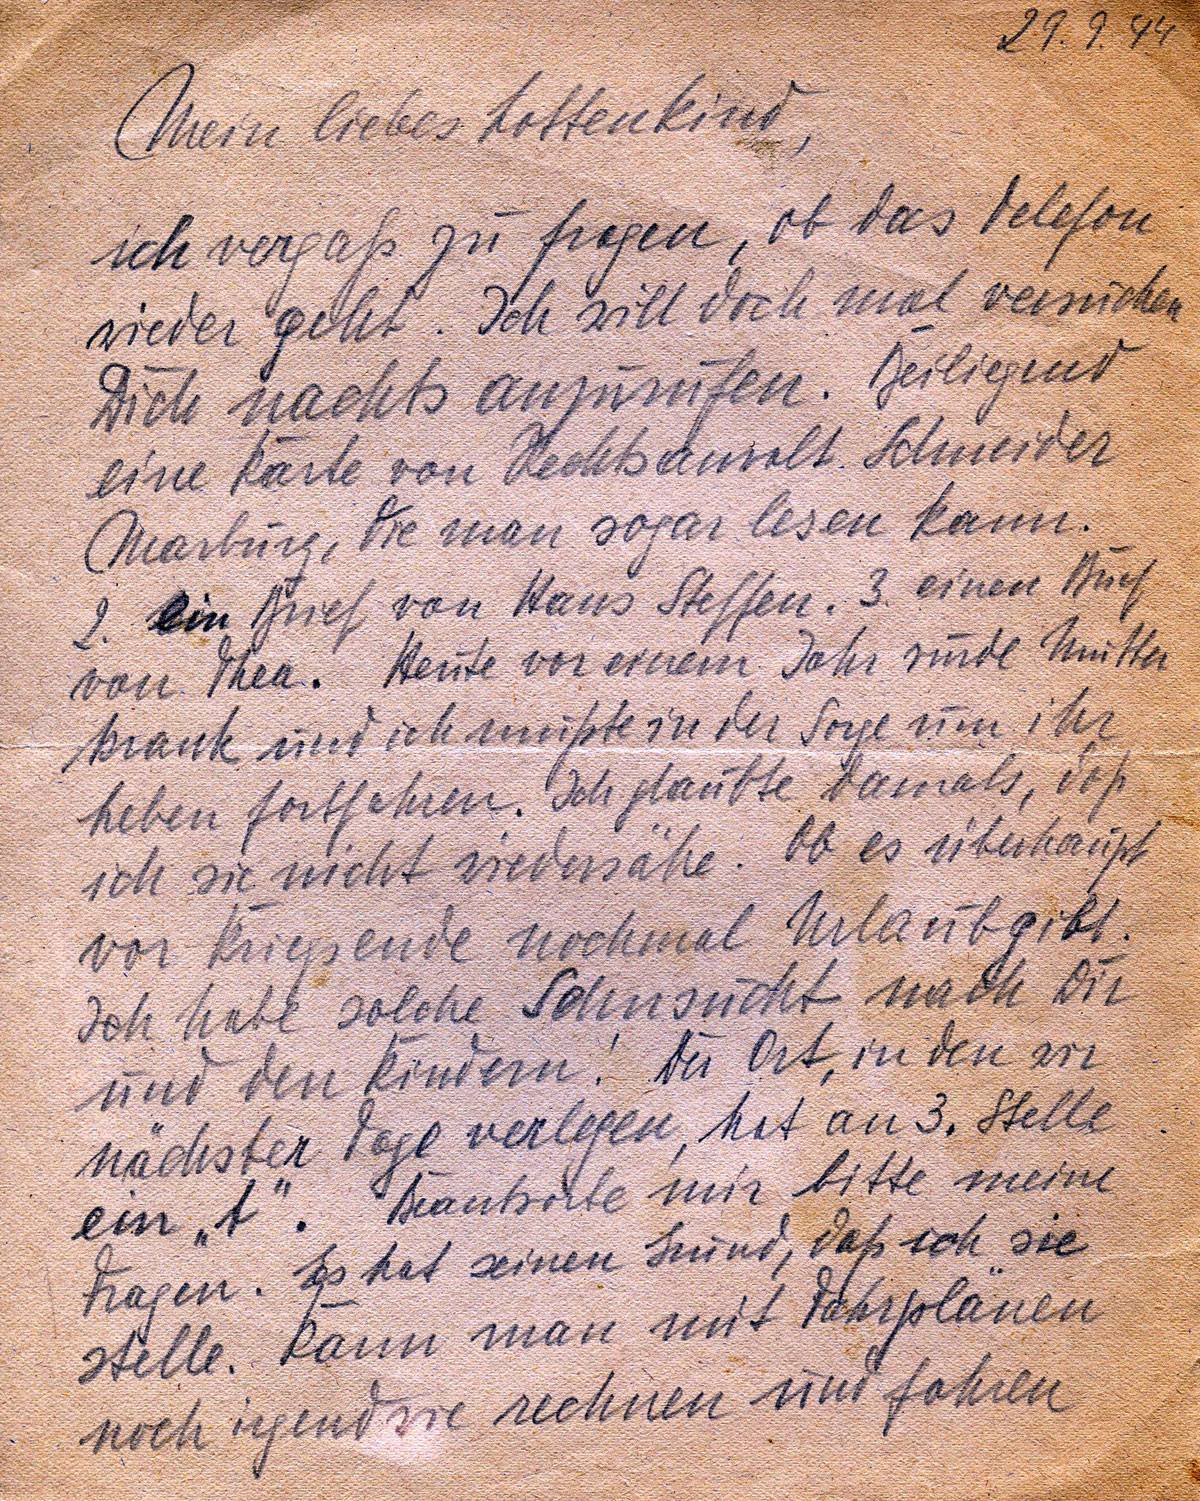 29. 9. 44
Mein liebes Lottenkind,
ich vergaß zu fragen, ob das Telefon
wieder geht. Ich will doch mal versuchen
Dich nachts anzurufen. Beiliegend
eine Karte von Rechtsanwalt Schneider
Marburg, die man sogar lesen kann.
2. ein Brief von Hans Steffen. 3. einen Brief
von Thea. Heute vor einem Jahr wurde Mutter
krank und ich mußte in der Sorge um ihr
Leben fortfahren. Ich glaubte damals, daß
ich sie nicht wiedersähe. Ob es überhaupt
vor Kriegsende nochmal Urlaub gibt.
Ich habe solche Sehnsucht nach Dir
und den Kindern! Der Ort, in den wir
nächster Tage verlegen, hat an 3. Stelle
ein „t“. Beantworte mir bitte meine
Fragen. Es hat seinen Grund, daß ich sie
stelle. Kann man mit Fahrplänen
noch irgendwie rechnen und fahren